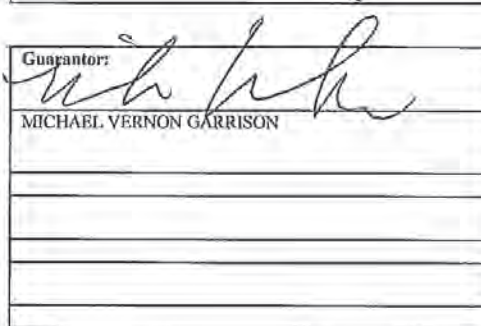 Guarantor:
MICHAEL VERNON GARRISON